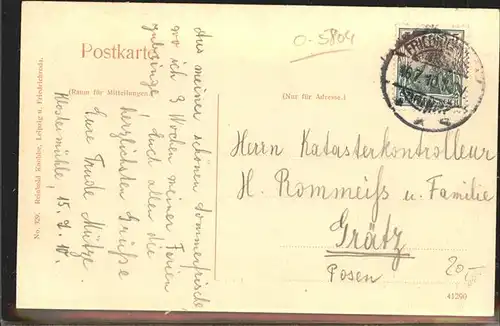 Postkarte
(Raum für Mitteilungen)
(Nur für Adresse.)
0-5804
Aus meiner schönen Sommerfrische,
wo ich 3 Wochen meiner Ferien
zubringe Euch allen die
herzlichsten Grüße
Eure Trude Mütze.
Klostermühle, 15.7.10.
Herrn Katasterkontrolleur
H. Rommeiß u. Familie
Grätz
Posen
20.-
41290
No. 329. Reinhold Koschke, Leipzig u. Friedrichroda.